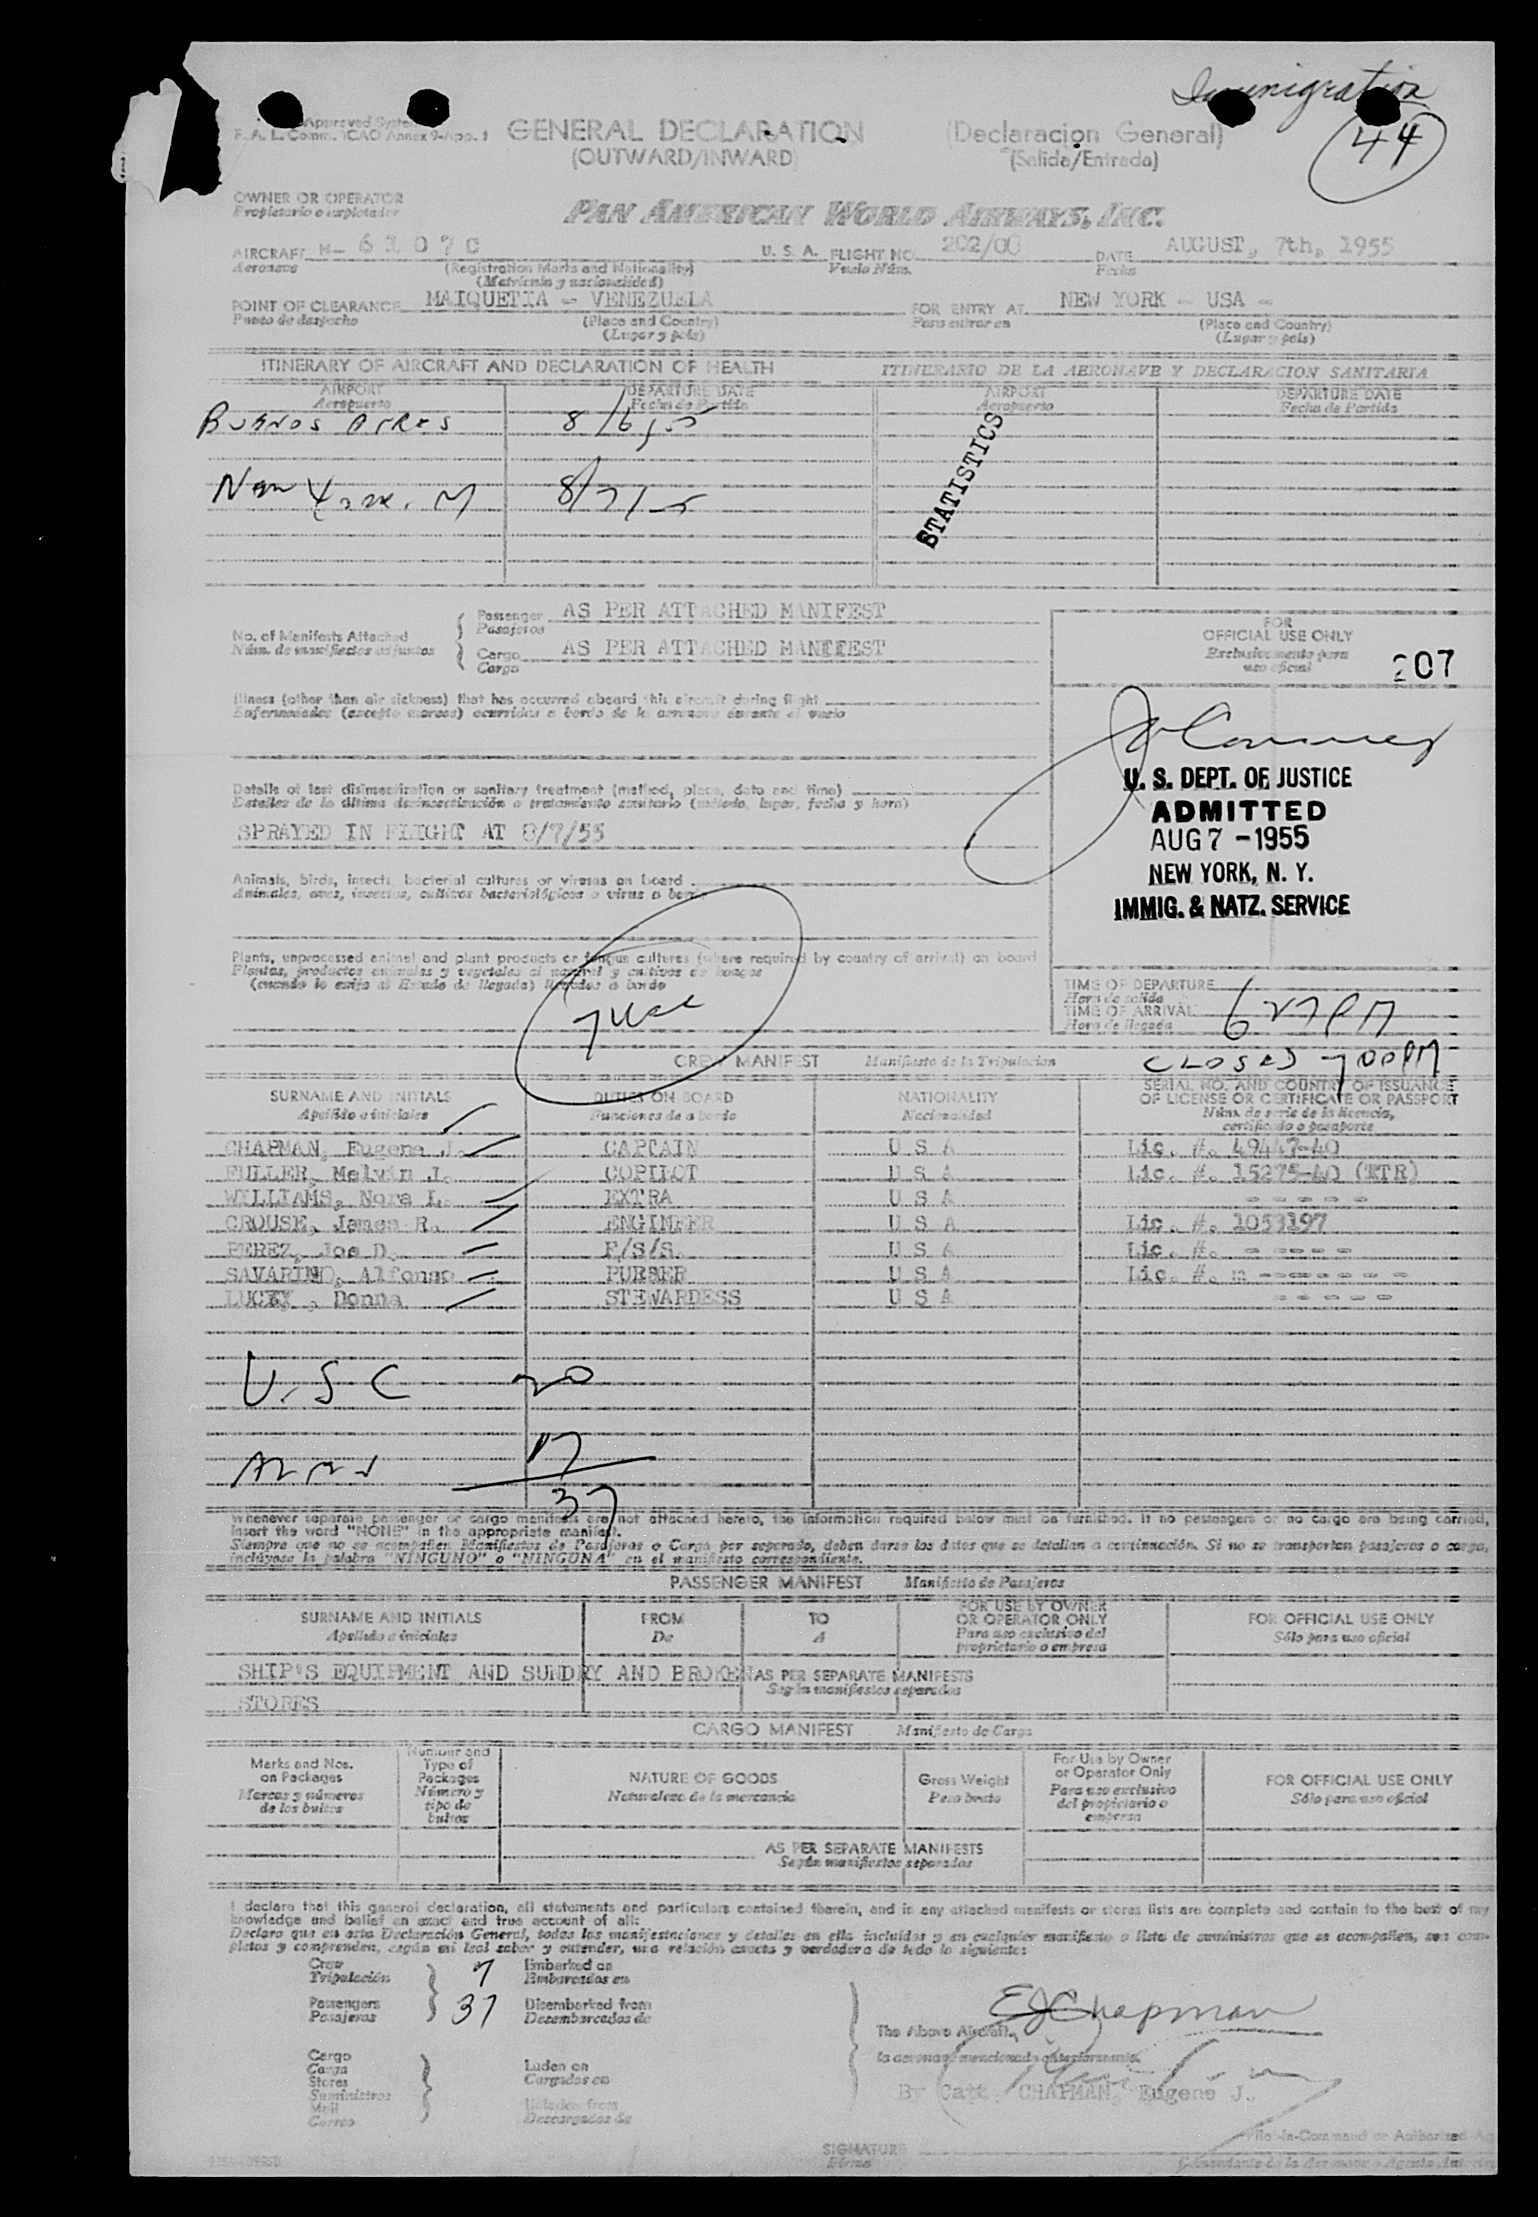 Immigration
44
Approved
F. A. L. Comm. ICAO Annex 9-App. 1
GENERAL DECLARATION (Declaracion General)
(OUTWARD/INWARD) (Salida/Entrada)
OWNER OR OPERATOR
Propietario o explotador
PAN AMERICAN WORLD AIRWAYS, INC.
AIRCRAFT N- 6107C U. S. A. FLIGHT NO. 202/00 DATE AUGUST, 7th, 1955
Aeronave (Registration Marks and Nationality) Vuelo Núm. Fecha
(Matrícula y nacionalidad)
POINT OF CLEARANCE MAIQUETIA - VENEZUELA FOR ENTRY AT NEW YORK - USA -
Punto de despacho (Place and Country) Para entrar en (Place and Country)
(Lugar y país) (Lugar y país)
ITINERARY OF AIRCRAFT AND DECLARATION OF HEALTH ITINERARIO DE LA AERONAVE Y DECLARACION SANITARIA
AIRPORT DEPARTURE DATE AIRPORT DEPARTURE DATE
Aeropuerto Fecha de Partida Aeropuerto Fecha de Partida
Buenos Aires 8/6/55
New York 8/7/5
STATISTICS
No. of Manifests Attached
Núm. de manifiestos adjuntos
Passenger AS PER ATTACHED MANIFEST
Pasajeros
Cargo AS PER ATTACHED MANIFEST
Carga
FOR
OFFICIAL USE ONLY
Exclusivamente para
uso oficial
207
Illness (other than air sickness) that has occurred aboard this aircraft during flight
Enfermedades (excepto mareos) ocurridas a bordo de la aeronave durante el vuelo
Details of last disinsectization or sanitary treatment (method, place, date and time)
Detalles de la última desinsectización o tratamiento sanitario (método, lugar, fecha y hora)
SPRAYED IN FLIGHT AT 8/7/55
U. S. DEPT. OF JUSTICE
ADMITTED
AUG 7 - 1955
NEW YORK, N. Y.
IMMIG. & NATZ. SERVICE
Animals, birds, insects, bacterial cultures or viruses on board
Animales, aves, insectos, cultivos bacteriológicos o virus a bordo
Plants, unprocessed animal and plant products or fungus cultures (where required by country of arrival) on board
Plantas, productos animales y vegetales al natural y cultivos de hongos
(cuando lo exija el Estado de llegada) llevados a bordo
TIME OF DEPARTURE
Hora de salida
TIME OF ARRIVAL 627PM
Hora de llegada
CLOSED 700PM
CREW MANIFEST Manifiesto de la Tripulacion
SURNAME AND INITIALS DUTIES ON BOARD NATIONALITY SERIAL NO. AND COUNTRY OF ISSUANCE
OF LICENSE OR CERTIFICATE OR PASSPORT
Apellido e iniciales Funciones de a bordo Nacionalidad Núm. de serie de la licencia,
certificado o pasaporte
CHAPMAN, Eugene J. CAPTAIN U S A Lic. #. 49447-40
FULLER, Melvin J. COPILOT U S A Lic. #. 15275-40 (KTR)
WILLIAMS, Nora L. EXTRA U S A - - - - -
CROUSE, James R. ENGINEER U S A Lic. #. 1053197
PEREZ, Joe D. F/S/S. U S A Lic. #. - - - - -
SAVARINO, Alfonso PURSER U S A Lic. #.
LUCKY, Donna STEWARDESS U S A - - - - -
U.S C 20
17
37
Whenever separate passenger or cargo manifests are not attached hereto, the information required below must be furnished. If no passengers or no cargo are being carried,
insert the word "NONE" in the appropriate manifest.
Siempre que no se acompañen Manifiestos de Pasajeros o Carga por separado, deben darse los datos que se detallan a continuación. Si no se transportan pasajeros o carga,
inclúyase la palabra "NINGUNO" o "NINGUNA" en el manifiesto correspondiente.
PASSENGER MANIFEST Manifiesto de Pasajeros
SURNAME AND INITIALS FROM TO FOR USE BY OWNER
OR OPERATOR ONLY FOR OFFICIAL USE ONLY
Apellido e iniciales De A Para uso exclusivo del
propietario o empresa Sólo para uso oficial
SHIP'S EQUIPMENT AND SUNDRY AND BROKEN AS PER SEPARATE MANIFESTS
Según manifiestos separados
STORES
CARGO MANIFEST Manifiesto de Carga
Marks and Nos.
on Packages
Marcas y números
de los bultos
Number and
Type of
Packages
Número y
tipo de
bultos
NATURE OF GOODS
Naturaleza de la mercancía
Gross Weight
Peso bruto
For Use by Owner
or Operator Only
Para uso exclusivo
del propietario o
empresa
FOR OFFICIAL USE ONLY
Sólo para uso oficial
AS PER SEPARATE MANIFESTS
Según manifiestos separados
I declare that this general declaration, all statements and particulars contained therein, and in any attached manifests or stores lists are complete and contain to the best of my
knowledge and belief an exact and true account of all:
Declaro que en esta Declaración General, todas las manifestaciones y detalles en ella incluidos y en cualquier manifiesto o lista de suministros que se acompañen, son com-
pletos y comprenden, según mi leal saber y entender, una relación exacta y verdadera de todo lo siguiente:
Crew 7 Embarked on
Tripulación Embarcados en
Passengers 37 Disembarked from
Pasajeros Desembarcados de
EJChapman
The Above Aircraft.
la aeronave mencionada anteriormente.
Cargo
Carga
Stores
Suministros
Mail
Correo
Laden on
Cargados en
Unladen from
Descargados de
By Capt. CHAPMAN, Eugene J.
Pilot-in-Command or Authorized Ag
SIGNATURE
Firma
Comandante de la Aeronave o Agente